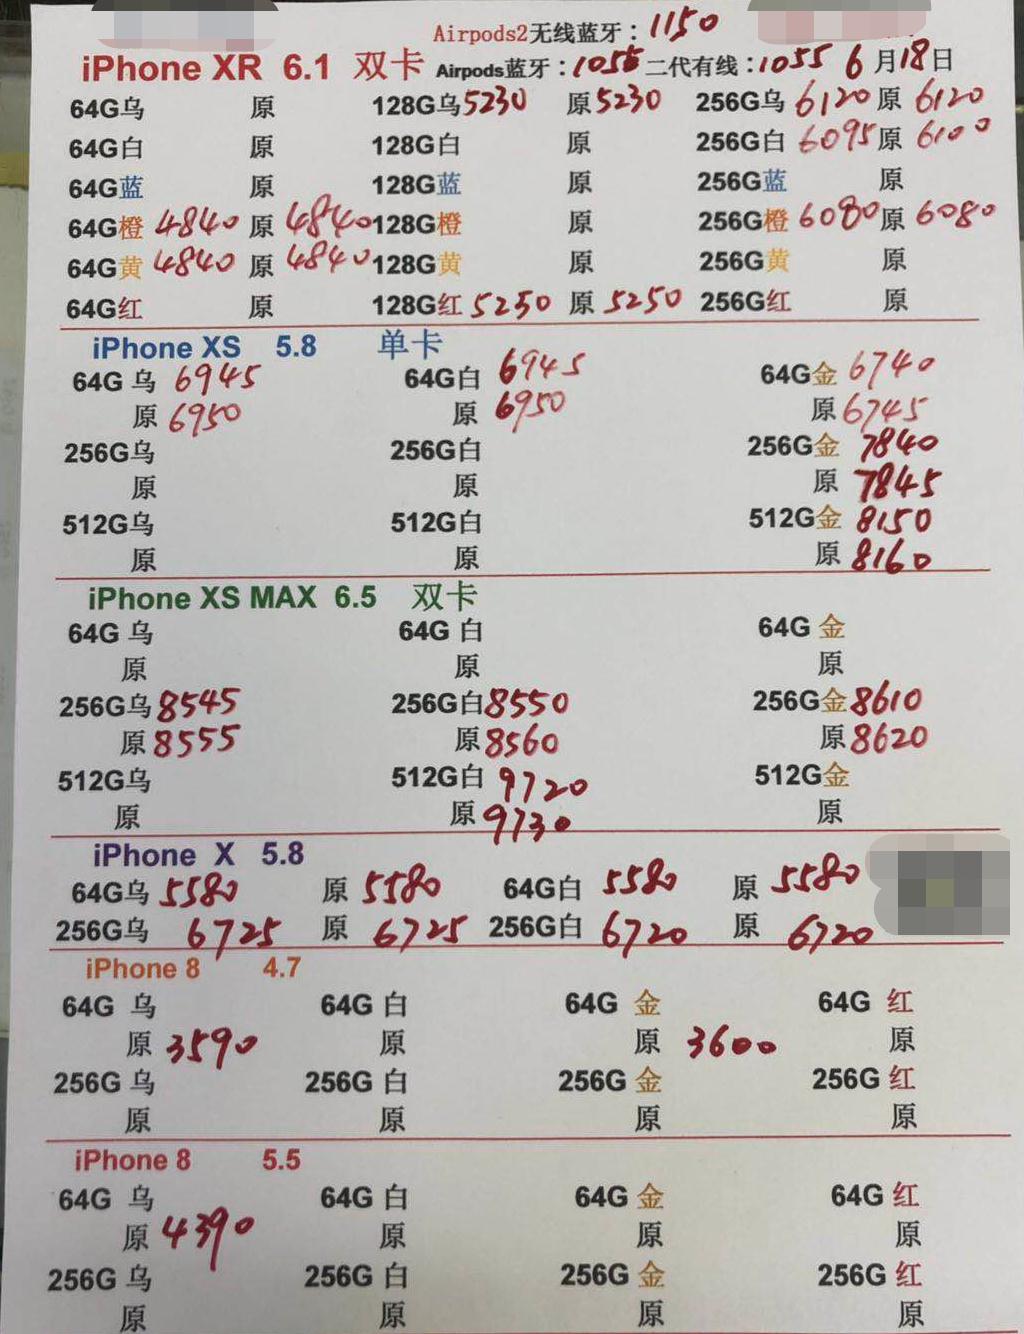 Airpods2无线蓝牙：1150
iPhone XR 6.1 双卡 Airpods蓝牙：1055 二代有线：1055 6月18日
64G乌 原 128G乌5230 原5230 256G乌6120原6120
64G白 原 128G白 原 256G白6095原6100
64G蓝 原 128G蓝 原 256G蓝 原
64G橙4840原4840 128G橙 原 256G橙6080原6080
64G黄4840原4840 128G黄 原 256G黄 原
64G红 原 128G红5250 原5250 256G红 原
iPhone XS 5.8 单卡
64G 乌 6945 64G白 6945 64G金 6740
原 6950 原 6950 原 6745
256G乌 256G白 256G金 7840
原 原 原 7845
512G乌 512G白 512G金 8150
原 原 原 8160
iPhone XS MAX 6.5 双卡
64G 乌 64G 白 64G 金
原 原 原
256G乌8545 256G白8550 256G金8610
原8555 原8560 原8620
512G乌 512G白 9720 512G金
原 原9730 原
iPhone X 5.8
64G乌5580 原5580 64G白 5580 原5580
256G乌 6725 原 6725 256G白 6720 原 6720
iPhone 8 4.7
64G 乌 64G 白 64G 金 64G 红
原 3590 原 原 3600 原
256G 乌 256G 白 256G 金 256G 红
原 原 原 原
iPhone 8 5.5
64G 乌 64G 白 64G 金 64G 红
原 4390 原 原 原
256G 乌 256G 白 256G 金 256G 红
原 原 原 原